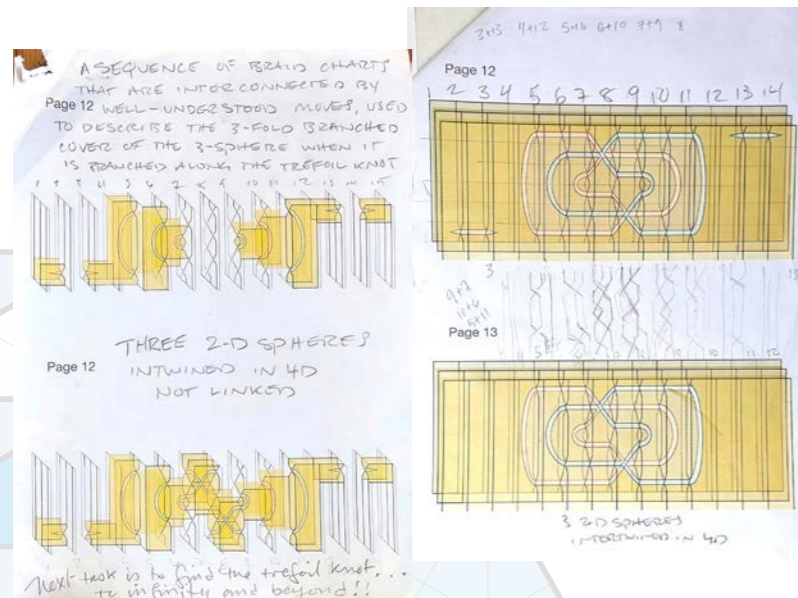 A SEQUENCE OF BRAID CHARTS
THAT ARE INTERCONNECTED BY
Page 12 WELL-UNDERSTOOD MOVES, USED
TO DESCRIBE THE 3-FOLD BRANCHED
COVER OF THE 3-SPHERE WHEN IT
IS BRANCHED ALONG THE TREFOIL KNOT
THREE 2-D SPHERES
Page 12 INTWINED IN 4D
NOT LINKED
Next task is to find the trefoil knot...
to infinity and beyond!!
3+13 4+12 6+10 7+9 8
Page 12
1 2 3 4 5 6 7 8 9 10 11 12 13 14
3 13
9+7
Page 13
3 2D SPHERES
INTERTWINED IN 4D